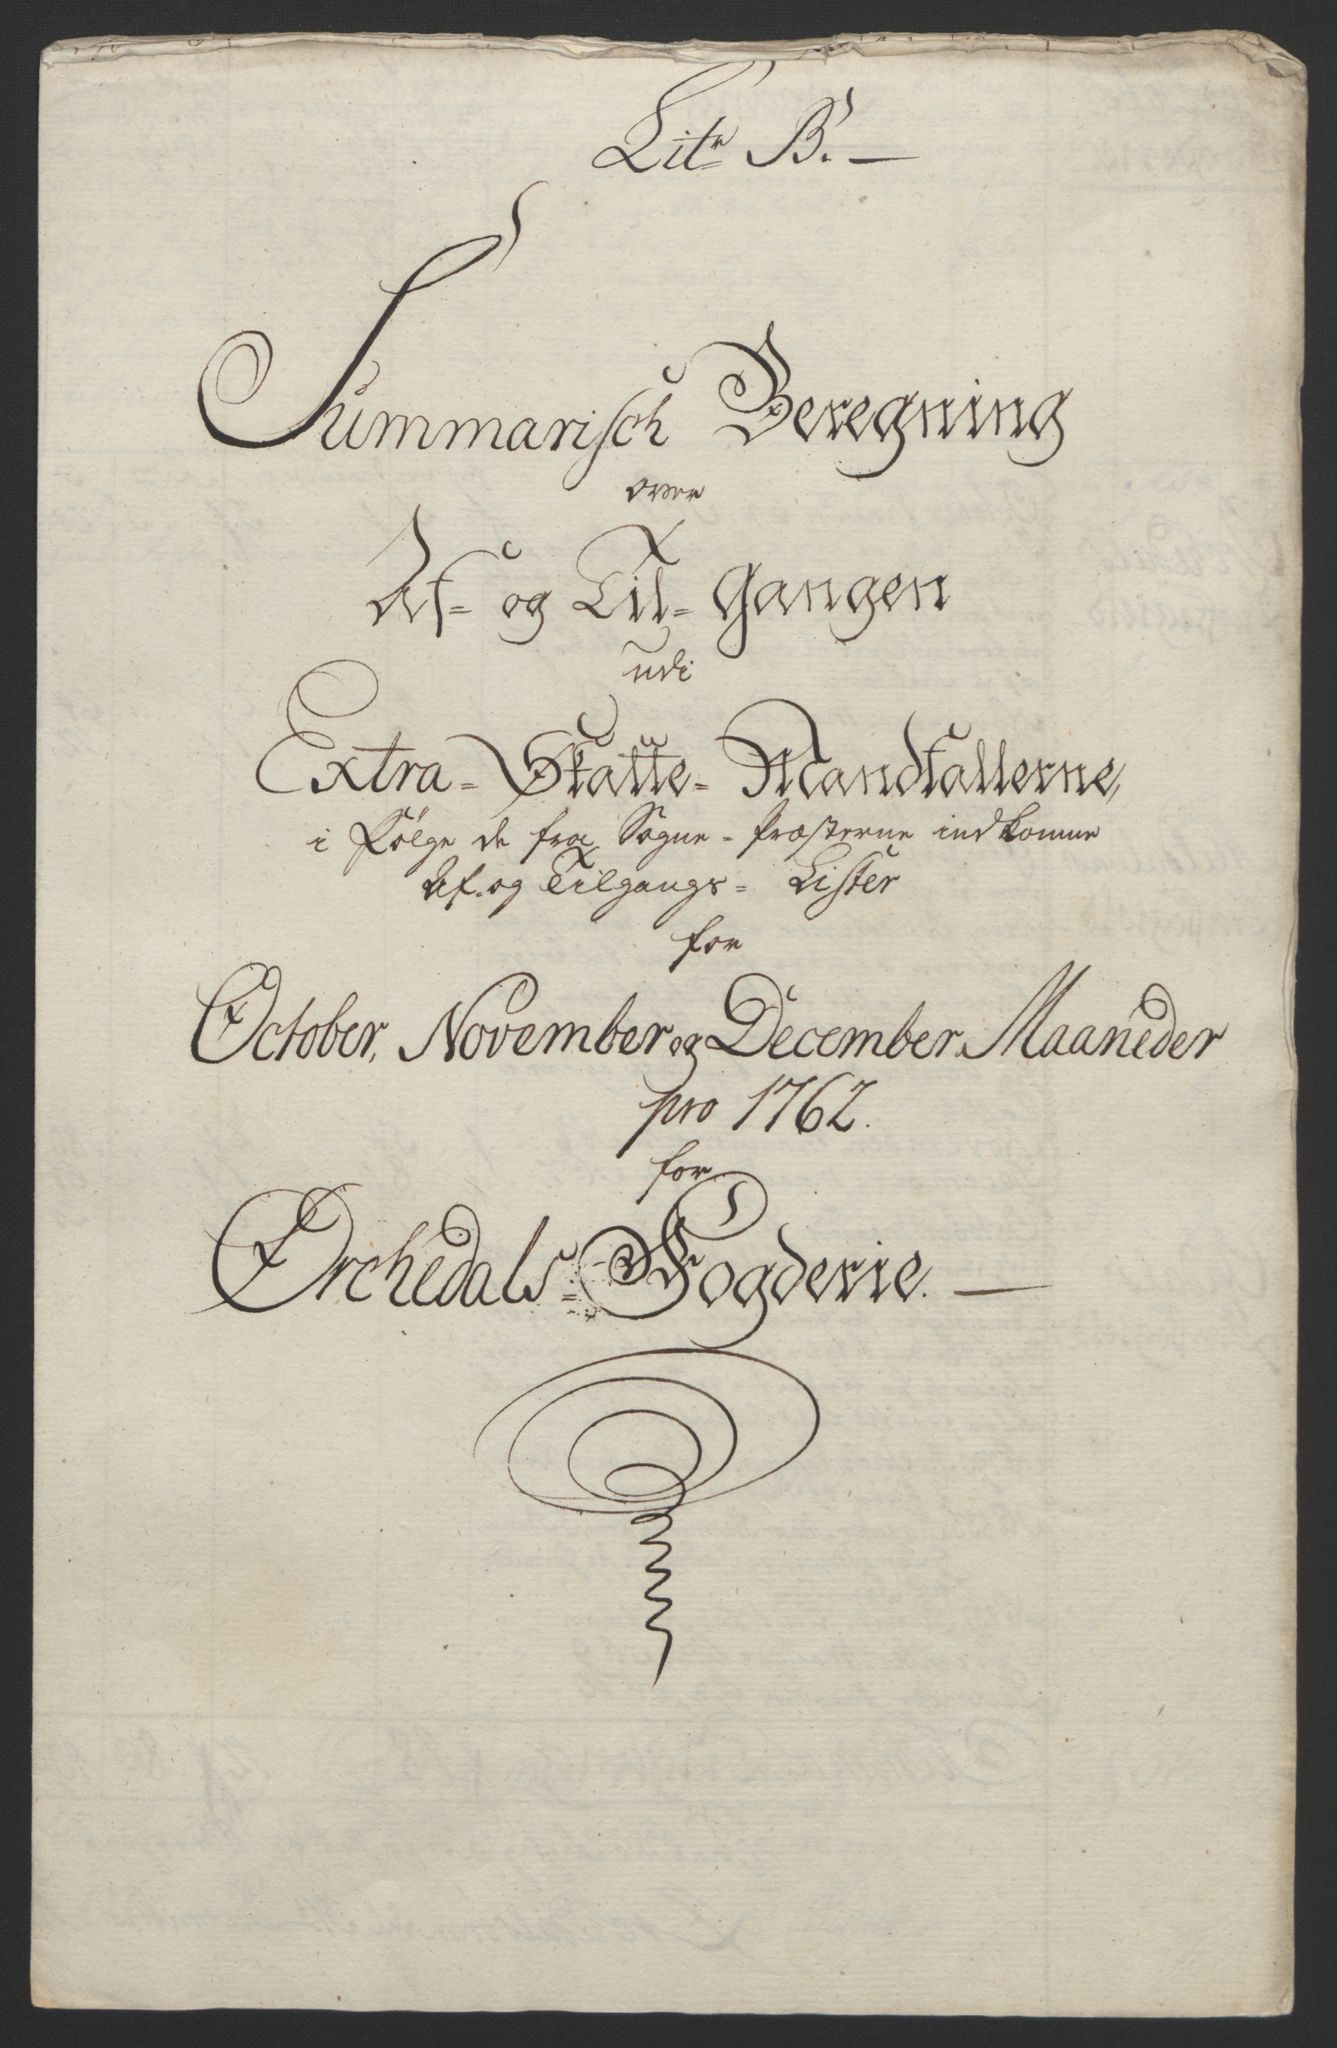 Litr B.
Summarisch Beregning
over
Af- og Til- Gangen
udi
Extra- Skatte- Mandtallerne,
i Følge de fra Sogne- Præsterne indkomne
Af- og Tilgangs- Lister
for
October, November og December Maaneder
pro 1762.
for
Orchedals- Fogderie.